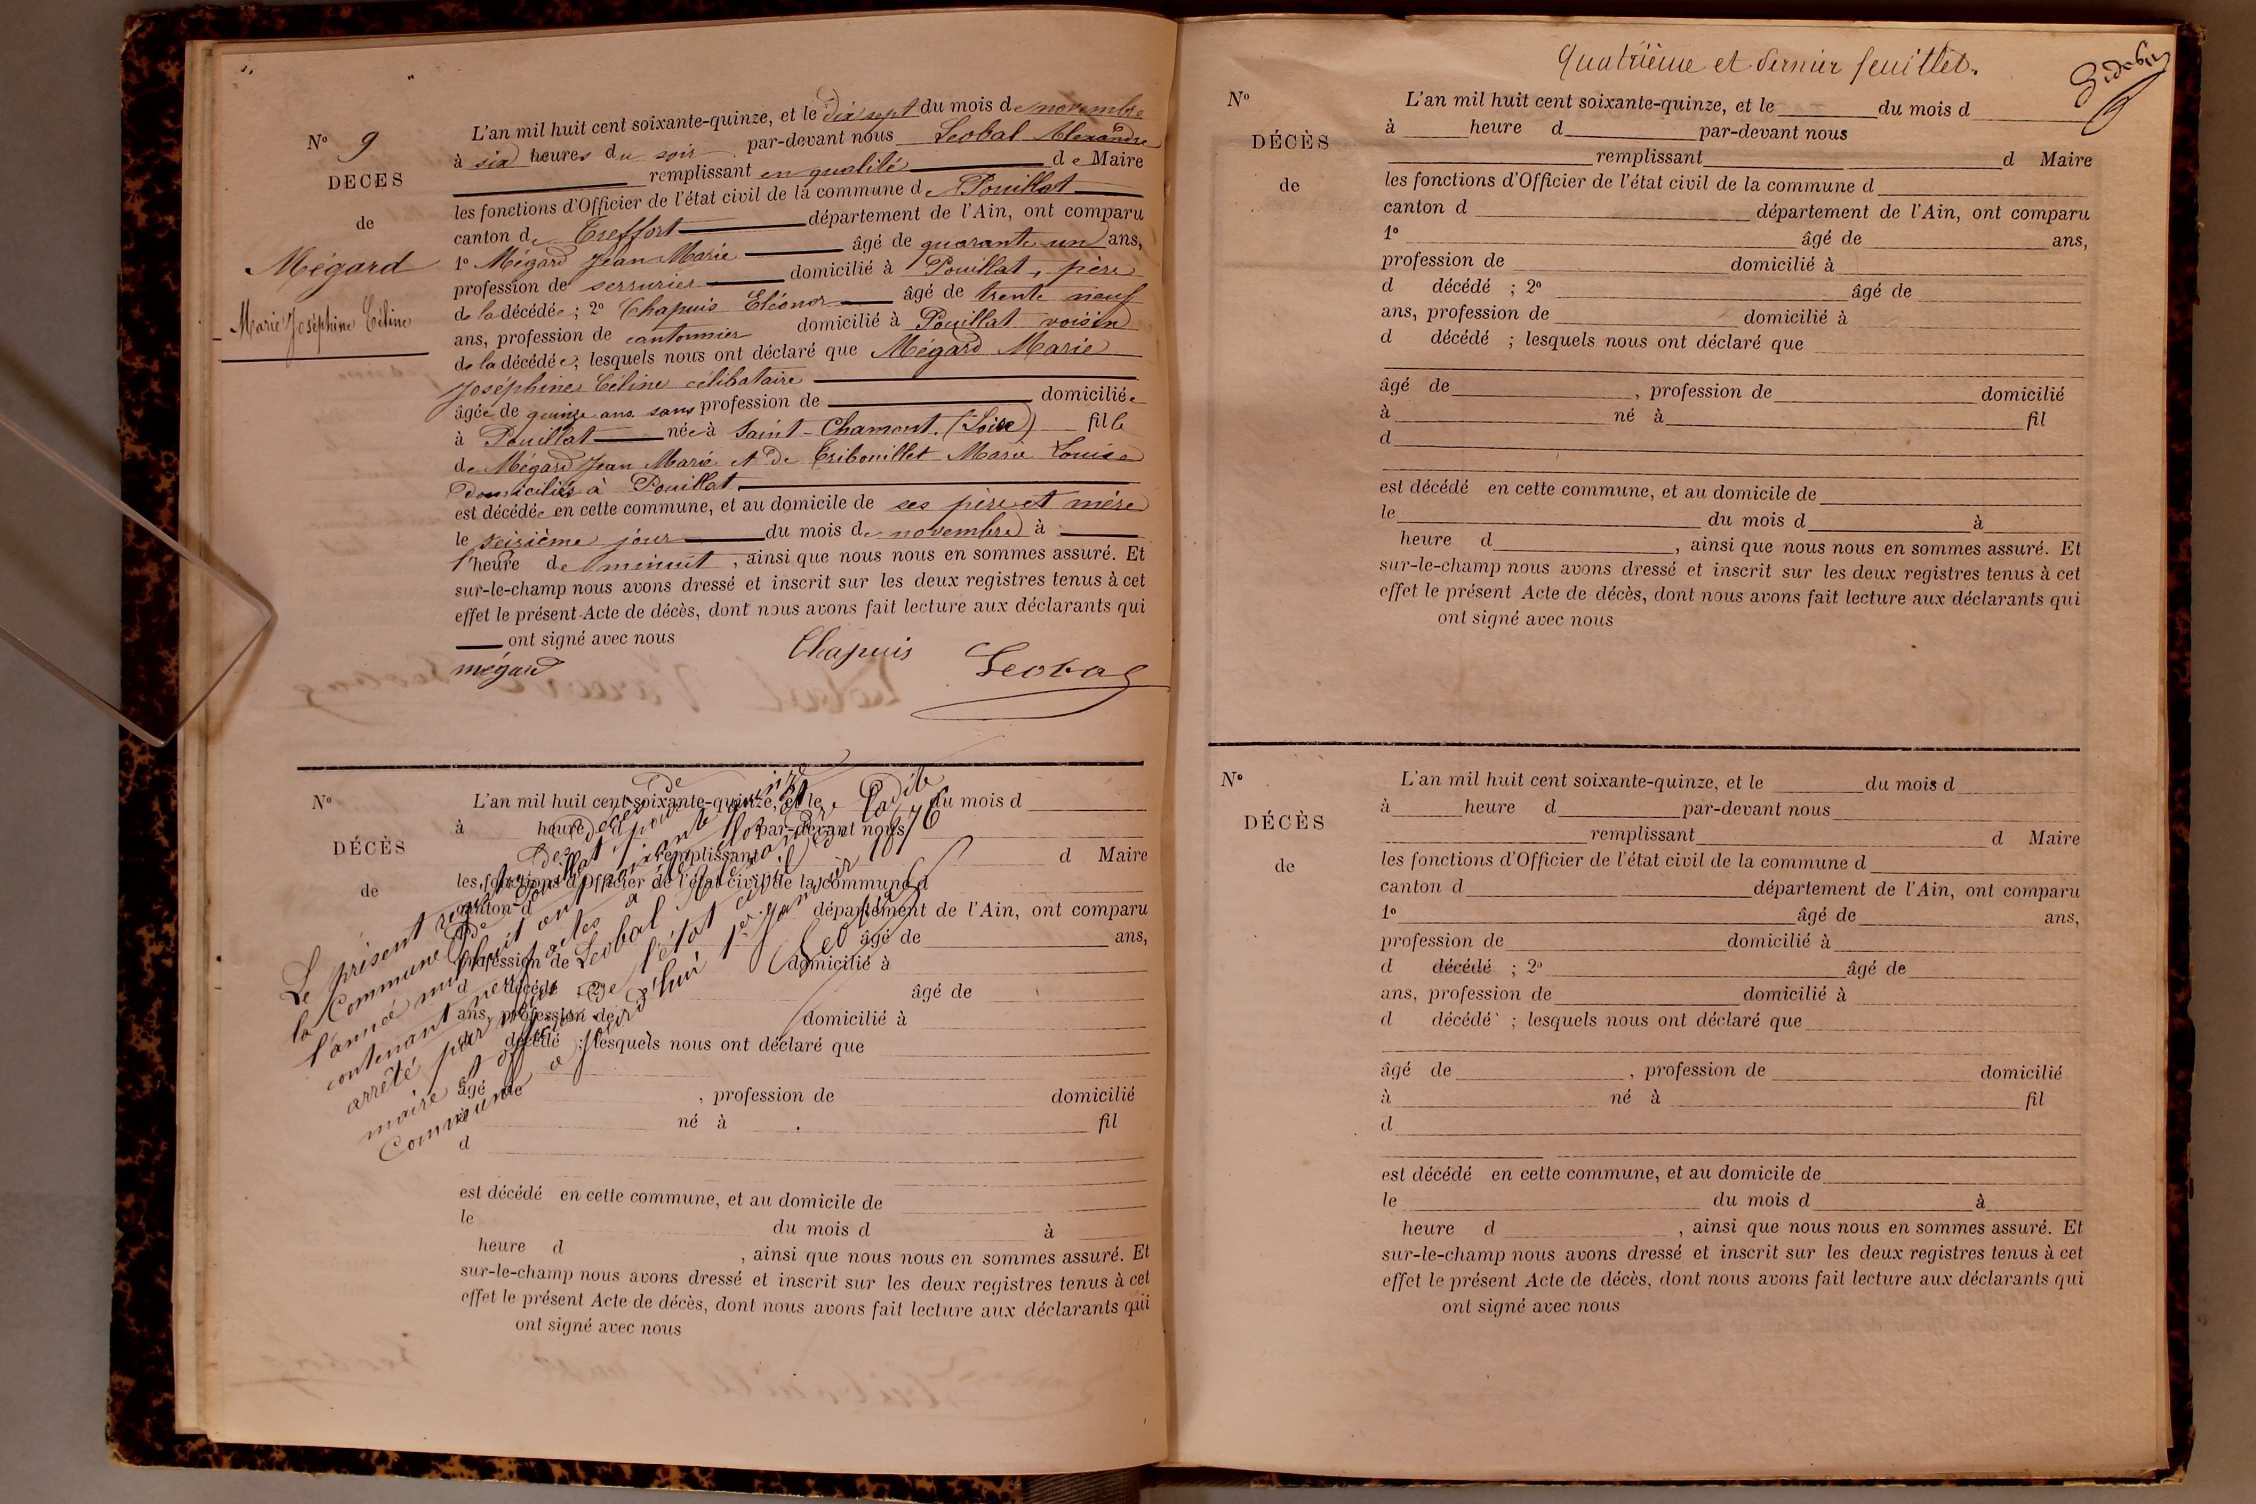 N° 9
DECES
de
Mégard
Marie Joséphine Céline
L'an mil huit cent soixante-quinze, et le dix sept du mois de novembre
à six heures du soir par-devant nous Leobal Alexandre
remplissant en qualité de Maire
les fonctions d'Officier de l'état civil de la commune de Pouillat
canton de Treffort département de l'Ain, ont comparu
1° Mégard Jean Marie âgé de quarante un ans,
profession de serrurier domicilié à Pouillat, père
de la décédée ; 2° Chapuis Eléonor âgé de trente neuf
ans, profession de cantonnier domicilié à Pouillat voisin
de la décédée ; lesquels nous ont déclaré que Mégard Marie
Joséphine Céline célibataire
âgée de quinze ans sans profession de domiciliée
à Pouillat née à Saint-Chamont (Loire) fille
de Mégard Jean Marie et de Tribouillet Marie Louise
domiciliés à Pouillat
est décédée en cette commune, et au domicile de ses père et mère
le seizième jour du mois de novembre à
l'heure de minuit, ainsi que nous nous en sommes assuré. Et
sur-le-champ nous avons dressé et inscrit sur les deux registres tenus à cet
effet le présent Acte de décès, dont nous avons fait lecture aux déclarants qui
ont signé avec nous
mégard Chapuis Leobal
N°
DÉCÈS
de
L'an mil huit cent soixante-quinze, et le du mois d
à heure d par-devant nous
remplissant d Maire
les fonctions d'Officier de l'état civil de la commune d
canton d département de l'Ain, ont comparu
âgé de ans,
profession de domicilié à
d décédé ; 2° âgé de
ans, profession de domicilié à
d décédé ; lesquels nous ont déclaré que
âgé de , profession de domicilié
à né à fil
d
est décédé en cette commune, et au domicile de
le du mois d à
heure d , ainsi que nous nous en sommes assuré. Et
sur-le-champ nous avons dressé et inscrit sur les deux registres tenus à cet
effet le présent Acte de décès, dont nous avons fait lecture aux déclarants qui
ont signé avec nous
Le présent registre des décès de
la Commune de Pouillat, pour
l'année mil huit cent soixante quinze
contenant neuf actes a été clos et
arrêté par nous Leobal Alexandre
maire et officier de l'état civil de ladite
Commune aujourd'hui 1er janvier 1876
Leobal
Quatrième et dernier feuillet.
N°
DÉCÈS
de
L'an mil huit cent soixante-quinze, et le du mois d
à heure d par-devant nous
remplissant d Maire
les fonctions d'Officier de l'état civil de la commune d
canton d département de l'Ain, ont comparu
1° âgé de ans,
profession de domicilié à
d décédé ; 2° âgé de
ans, profession de domicilié à
d décédé ; lesquels nous ont déclaré que
âgé de , profession de domicilié
à né à fil
d
est décédé en cette commune, et au domicile de
le du mois d à
heure d , ainsi que nous nous en sommes assuré. Et
sur-le-champ nous avons dressé et inscrit sur les deux registres tenus à cet
effet le présent Acte de décès, dont nous avons fait lecture aux déclarants qui
ont signé avec nous
N°
DÉCÈS
de
L'an mil huit cent soixante-quinze, et le du mois d
à heure d par-devant nous
remplissant d Maire
les fonctions d'Officier de l'état civil de la commune d
canton d département de l'Ain, ont comparu
1° âgé de ans,
profession de domicilié à
d décédé ; 2° âgé de
ans, profession de domicilié à
d décédé ; lesquels nous ont déclaré que
âgé de , profession de domicilié
à né à fil
d
est décédé en cette commune, et au domicile de
le du mois d à
heure d , ainsi que nous nous en sommes assuré. Et
sur-le-champ nous avons dressé et inscrit sur les deux registres tenus à cet
effet le présent Acte de décès, dont nous avons fait lecture aux déclarants qui
ont signé avec nous